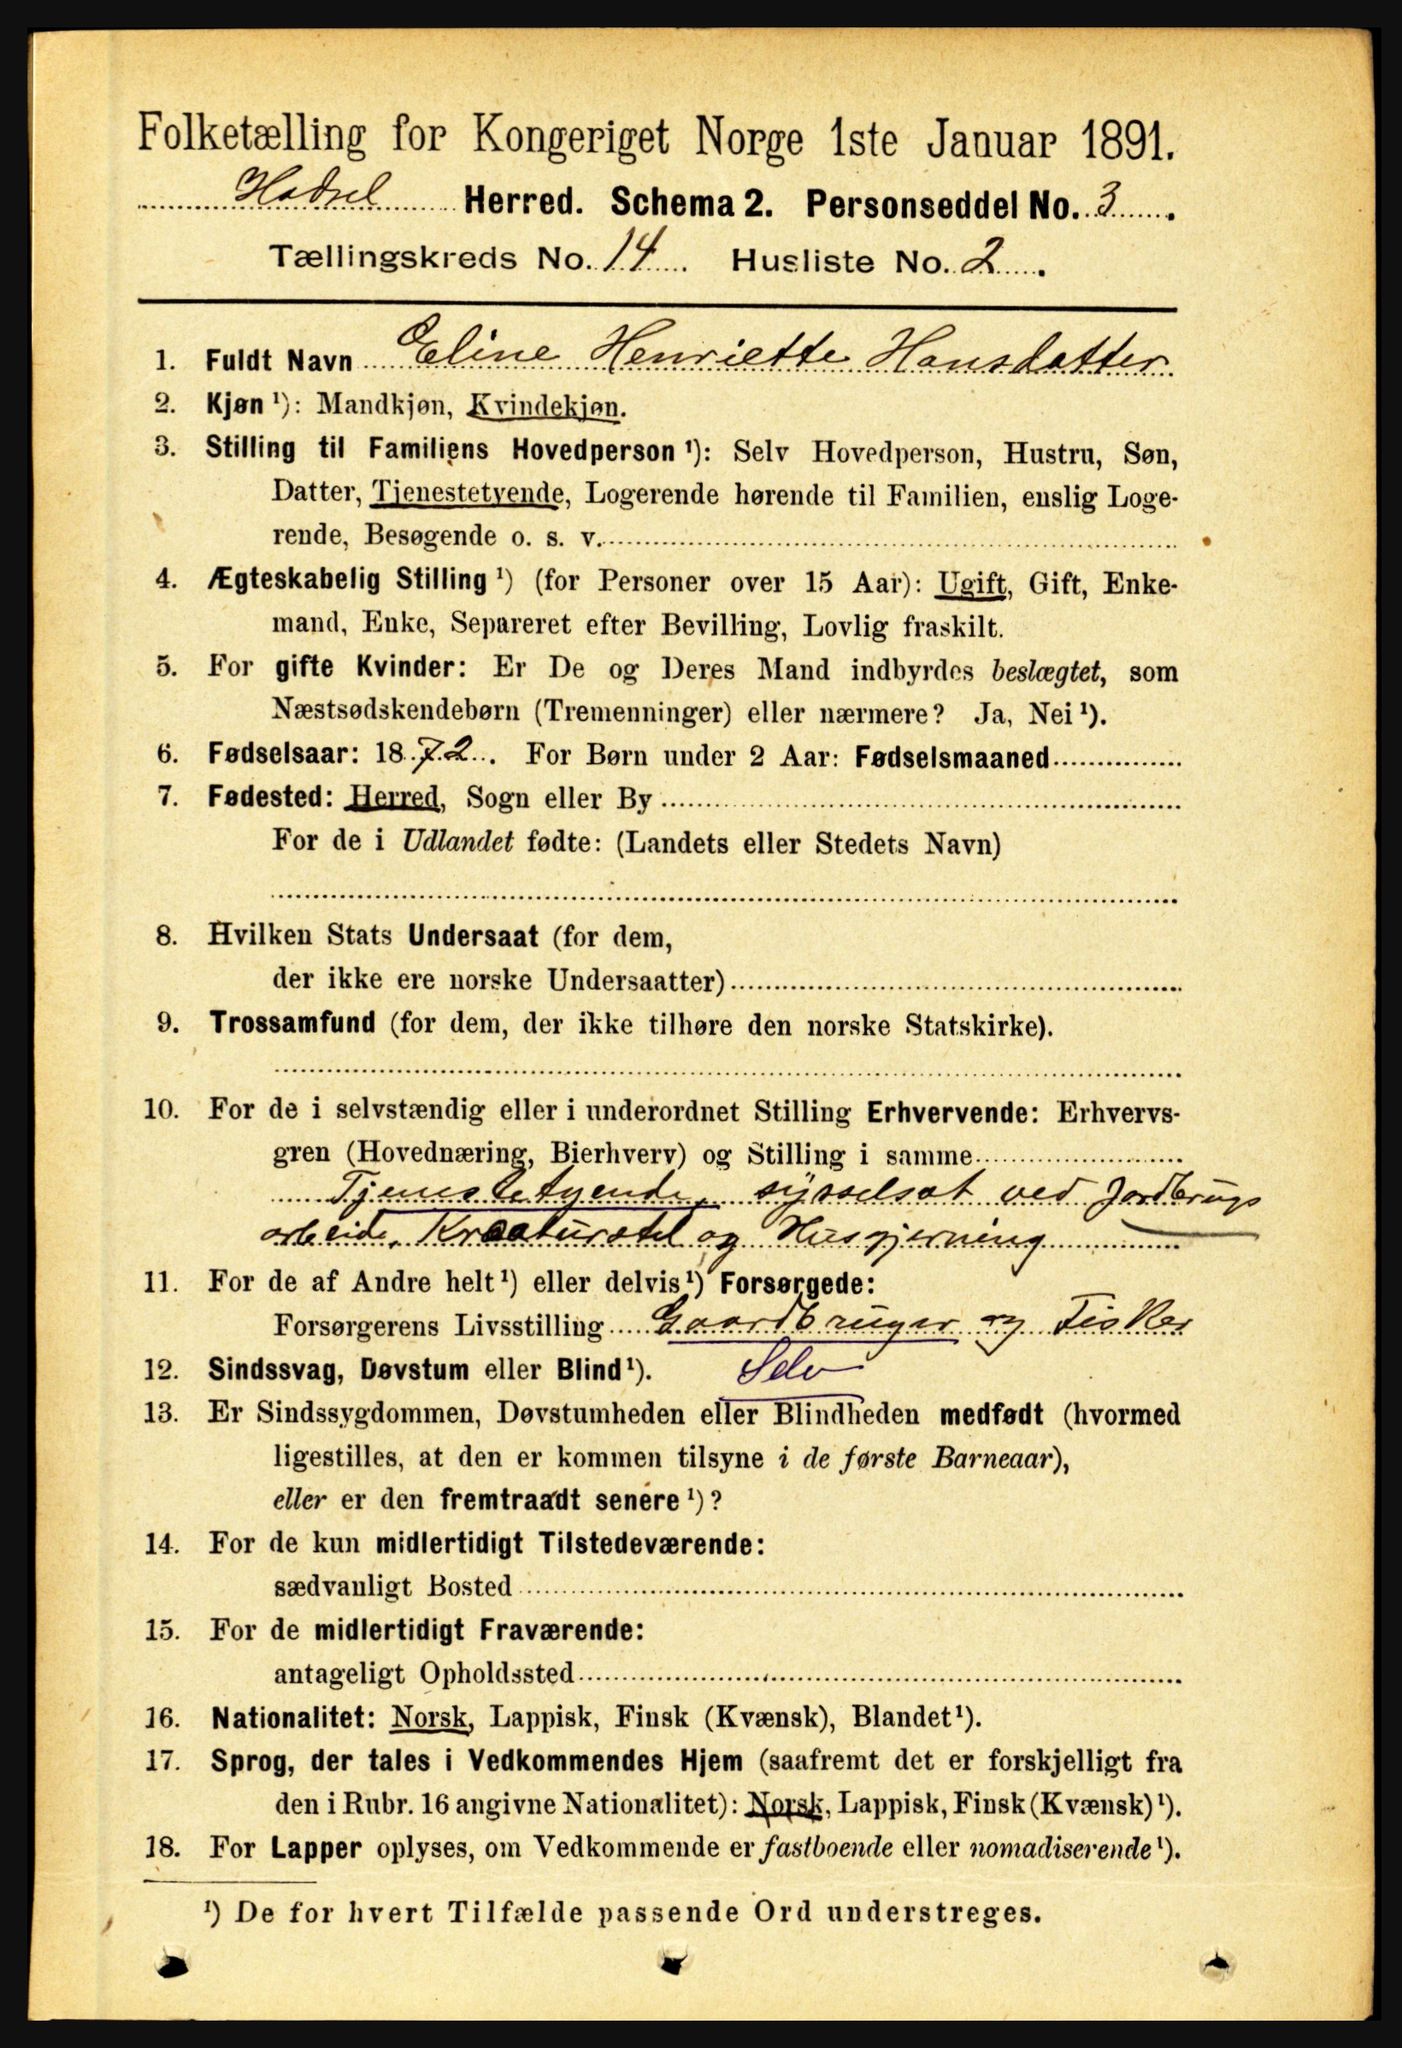 Folketælling for Kongeriget Norge 1ste Januar 1891.
Hadsel Herred. Schema 2. Personseddel No. 3.
Tællingskreds No. 14. Husliste No. 2.
1. Fuldt Navn Eline Henriette Hansdatter
2. Kjøn ¹): Mandkjøn, Kvindekjøn.
3. Stilling til Familiens Hovedperson ¹): Selv Hovedperson, Hustru, Søn,
Datter, Tjenestetyende, Logerende hørende til Familien, enslig Loge-
rende, Besøgende o. s. v.
4. Ægteskabelig Stilling ¹) (for Personer over 15 Aar): Ugift, Gift, Enke-
mand, Enke, Separeret efter Bevilling, Lovlig fraskilt.
5. For gifte Kvinder: Er De og Deres Mand indbyrdes beslægtet, som
Næstsødskendebørn (Tremenninger) eller nærmere? Ja, Nei ¹).
6. Fødselsaar: 1872. For Børn under 2 Aar: Fødselsmaaned
7. Fødested: Herred, Sogn eller By
For de i Udlandet fødte: (Landets eller Stedets Navn)
8. Hvilken Stats Undersaat (for dem,
der ikke ere norske Undersaatter)
9. Trossamfund (for dem, der ikke tilhøre den norske Statskirke).
10. For de i selvstændig eller i underordnet Stilling Erhvervende: Erhvervs-
gren (Hovednæring, Bierhverv) og Stilling i samme
Tjenestetyende, sysselsat ved Jordbrugs
arbeide, Kreaturstel og Husgjerning
11. For de af Andre helt ¹) eller delvis ¹) Forsørgede:
Forsørgerens Livsstilling Gaardbruger og Fisker
12. Sindssvag, Døvstum eller Blind ¹). Selv
13. Er Sindssygdommen, Døvstumheden eller Blindheden medfødt (hvormed
ligestilles, at den er kommen tilsyne i de første Barneaar),
eller er den fremtraadt senere ¹)?
14. For de kun midlertidigt Tilstedeværende:
sædvanligt Bosted
15. For de midlertidigt Fraværende:
antageligt Opholdssted
16. Nationalitet: Norsk, Lappisk, Finsk (Kvænsk), Blandet ¹).
17. Sprog, der tales i Vedkommendes Hjem (saafremt det er forskjelligt fra
den i Rubr. 16 angivne Nationalitet): Norsk, Lappisk, Finsk (Kvænsk) ¹).
18. For Lapper oplyses, om Vedkommende er fastboende eller nomadiserende ¹).
¹) De for hvert Tilfælde passende Ord understreges.